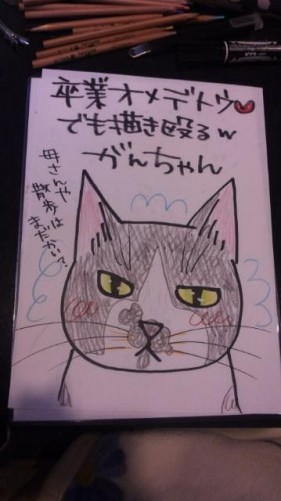 卒業オメデトウ
でも描き殴るw
がんちゃん
母さんや
散歩は
まだかい?